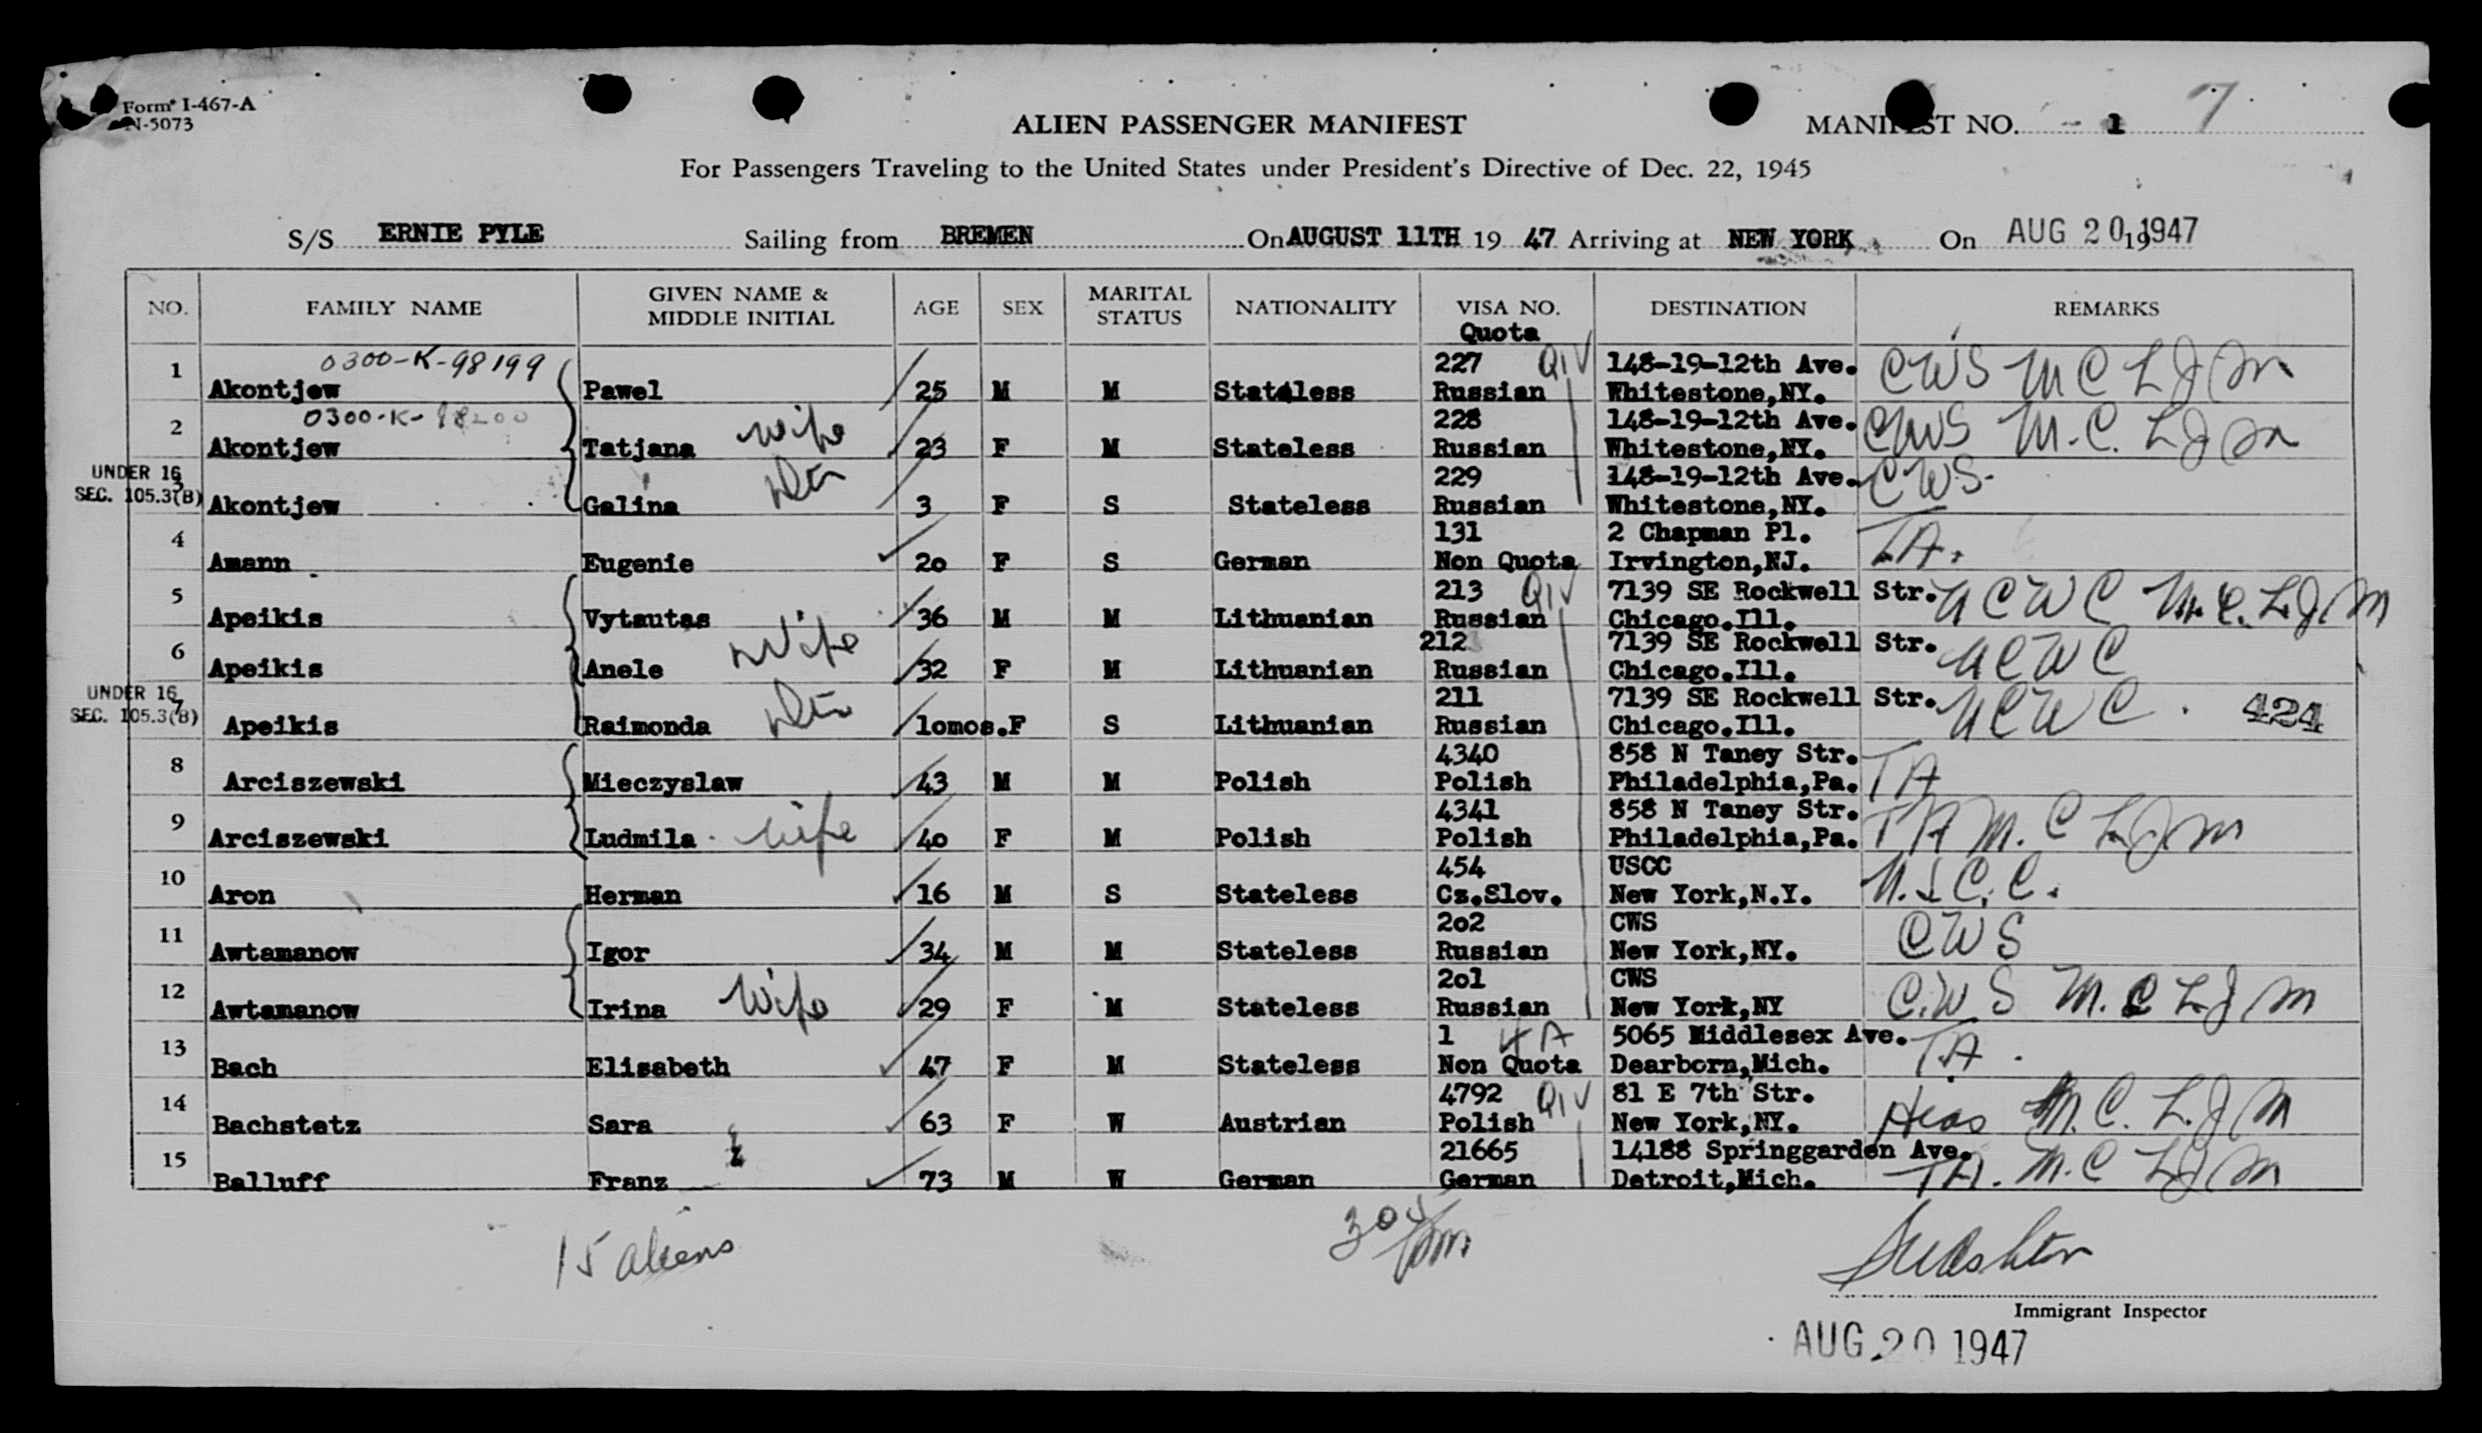 Form I-467-A
N-5073
ALIEN PASSENGER MANIFEST
MANIFEST NO. - 1 7
For Passengers Traveling to the United States under President's Directive of Dec. 22, 1945
S/S ERNIE PYLE Sailing from BREMEN On AUGUST 11TH 19 47 Arriving at NEW YORK On AUG 20 19 1947
NO. FAMILY NAME GIVEN NAME & MIDDLE INITIAL AGE SEX MARITAL STATUS NATIONALITY VISA NO. DESTINATION REMARKS
Quota
0300-K-98199 227 QIV 148-19-12th Ave.
1 Akontjew Pawel 25 M M Stateless Russian Whitestone,NY. CWS M C L J M
0300-K-98200 228 148-19-12th Ave.
2 Akontjew Tatjana Wife 23 F M Stateless Russian Whitestone,NY. CWS M.C. L J M
UNDER 16 229 148-19-12th Ave.
SEC. 105.3(B) 3 Akontjew Galina Dtr 3 F S Stateless Russian Whitestone,NY. CWS.
131 2 Chapman Pl.
4 Amann Eugenie 2o F S German Non Quota Irvington,NJ. TA.
213 QIV 7139 SE Rockwell Str.
5 Apeikis Vytautas 36 M M Lithuanian Russian Chicago.Ill. UCWC M.C. L J M
212 7139 SE Rockwell Str.
6 Apeikis Anele Wife 32 F M Lithuanian Russian Chicago.Ill. UCWC
UNDER 16 211 7139 SE Rockwell Str.
SEC. 105.3(B) 7 Apeikis Raimonda Dtr 1omos. F S Lithuanian Russian Chicago.Ill. UCWC. 424
4340 858 N Taney Str.
8 Arciszewski Mieczyslaw 43 M M Polish Polish Philadelphia,Pa. TA
4341 858 N Taney Str.
9 Arciszewski Ludmila Wife 4o F M Polish Polish Philadelphia,Pa. TA M. C L J M
454 USCC
10 Aron Herman 16 M S Stateless Cz.Slov. New York,N.Y. U.S.C.C.
2o2 CWS
11 Awtamanow Igor 34 M M Stateless Russian New York,NY. CWS
2o1 CWS
12 Awtamanow Irina Wife 29 F M Stateless Russian New York,NY C.W S M. C L J M
1 4A 5065 Middlesex Ave.
13 Bach Elisabeth 47 F M Stateless Non Quota Dearborn,Mich. TA.
4792 QIV 81 E 7th Str.
14 Bachstetz Sara 63 F W Austrian Polish New York,NY. Hias M.C. L.J M
21665 14188 Springgarden Ave.
15 Balluff Franz 73 M W German German Detroit,Mich. TA. M.C L J M
15 aliens
Immigrant Inspector
AUG 20 1947